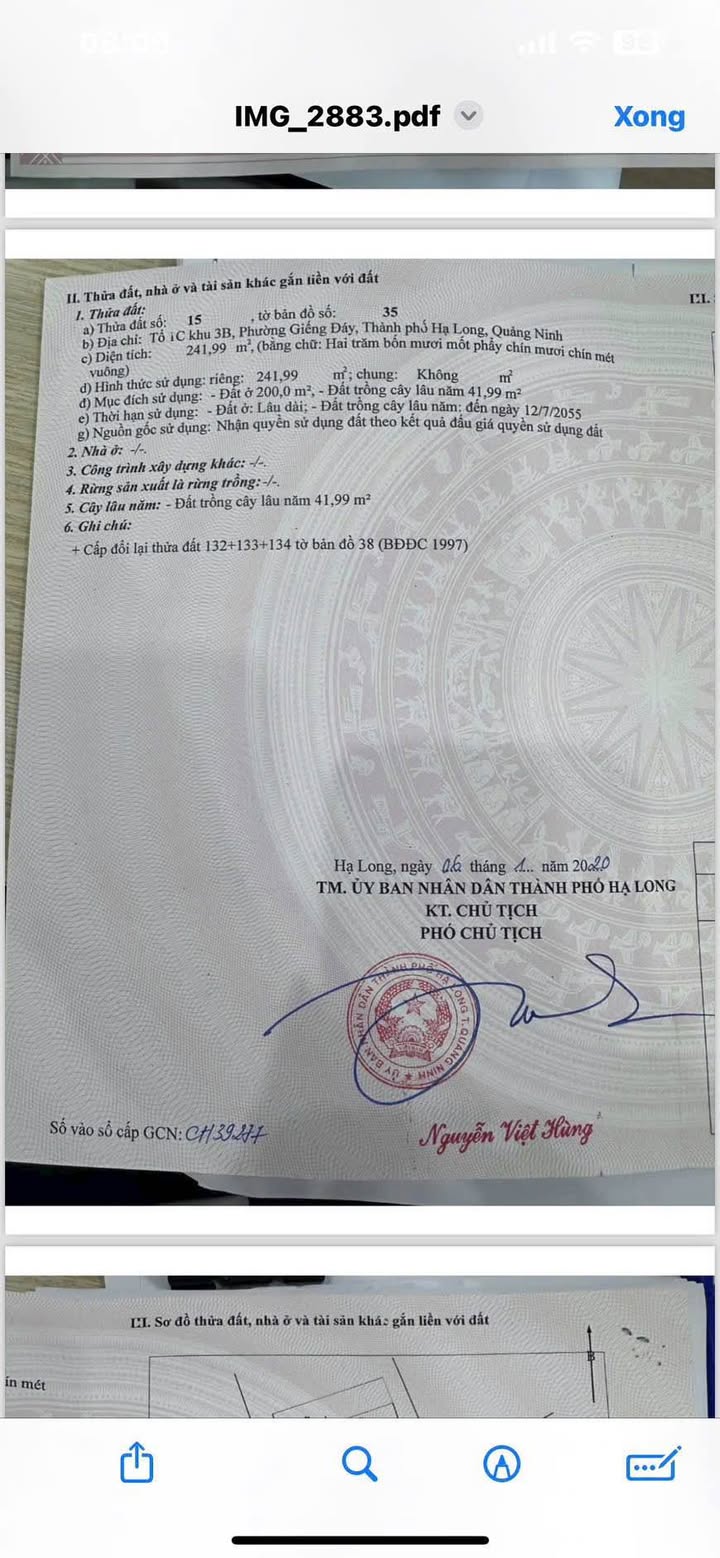 IMG_2883.pdf
Xong
II. Thửa đất, nhà ở và tài sản khác gắn liền với đất
1. Thửa đất:
a) Thửa đất số: 15 , tờ bản đồ số: 35
b) Địa chỉ: Tổ 1C khu 3B, Phường Giếng Đáy, Thành phố Hạ Long, Quảng Ninh
c) Diện tích: 241,99 m², (bằng chữ: Hai trăm bốn mươi mốt phẩy chín mươi chín mét
vuông)
d) Hình thức sử dụng: riêng: 241,99 m²; chung: Không m²
đ) Mục đích sử dụng: - Đất ở 200,0 m², - Đất trồng cây lâu năm 41,99 m²
e) Thời hạn sử dụng: - Đất ở: Lâu dài; - Đất trồng cây lâu năm: đến ngày 12/7/2055
g) Nguồn gốc sử dụng: Nhận quyền sử dụng đất theo kết quả đấu giá quyền sử dụng đất
2. Nhà ở: -/-.
3. Công trình xây dựng khác: -/-.
4. Rừng sản xuất là rừng trồng: -/-.
5. Cây lâu năm: - Đất trồng cây lâu năm 41,99 m²
6. Ghi chú:
+ Cấp đổi lại thửa đất 132+133+134 tờ bản đồ 38 (BĐĐC 1997)
Hạ Long, ngày 06 tháng 1.. năm 2020
TM. ỦY BAN NHÂN DÂN THÀNH PHỐ HẠ LONG
KT. CHỦ TỊCH
PHÓ CHỦ TỊCH
ỦY BAN NHÂN DÂN THÀNH PHỐ HẠ LONG T.QUẢNG NINH
Số vào sổ cấp GCN: CH39277
Nguyễn Việt Hùng
III. Sơ đồ thửa đất, nhà ở và tài sản khác gắn liền với đất
ín mét
B